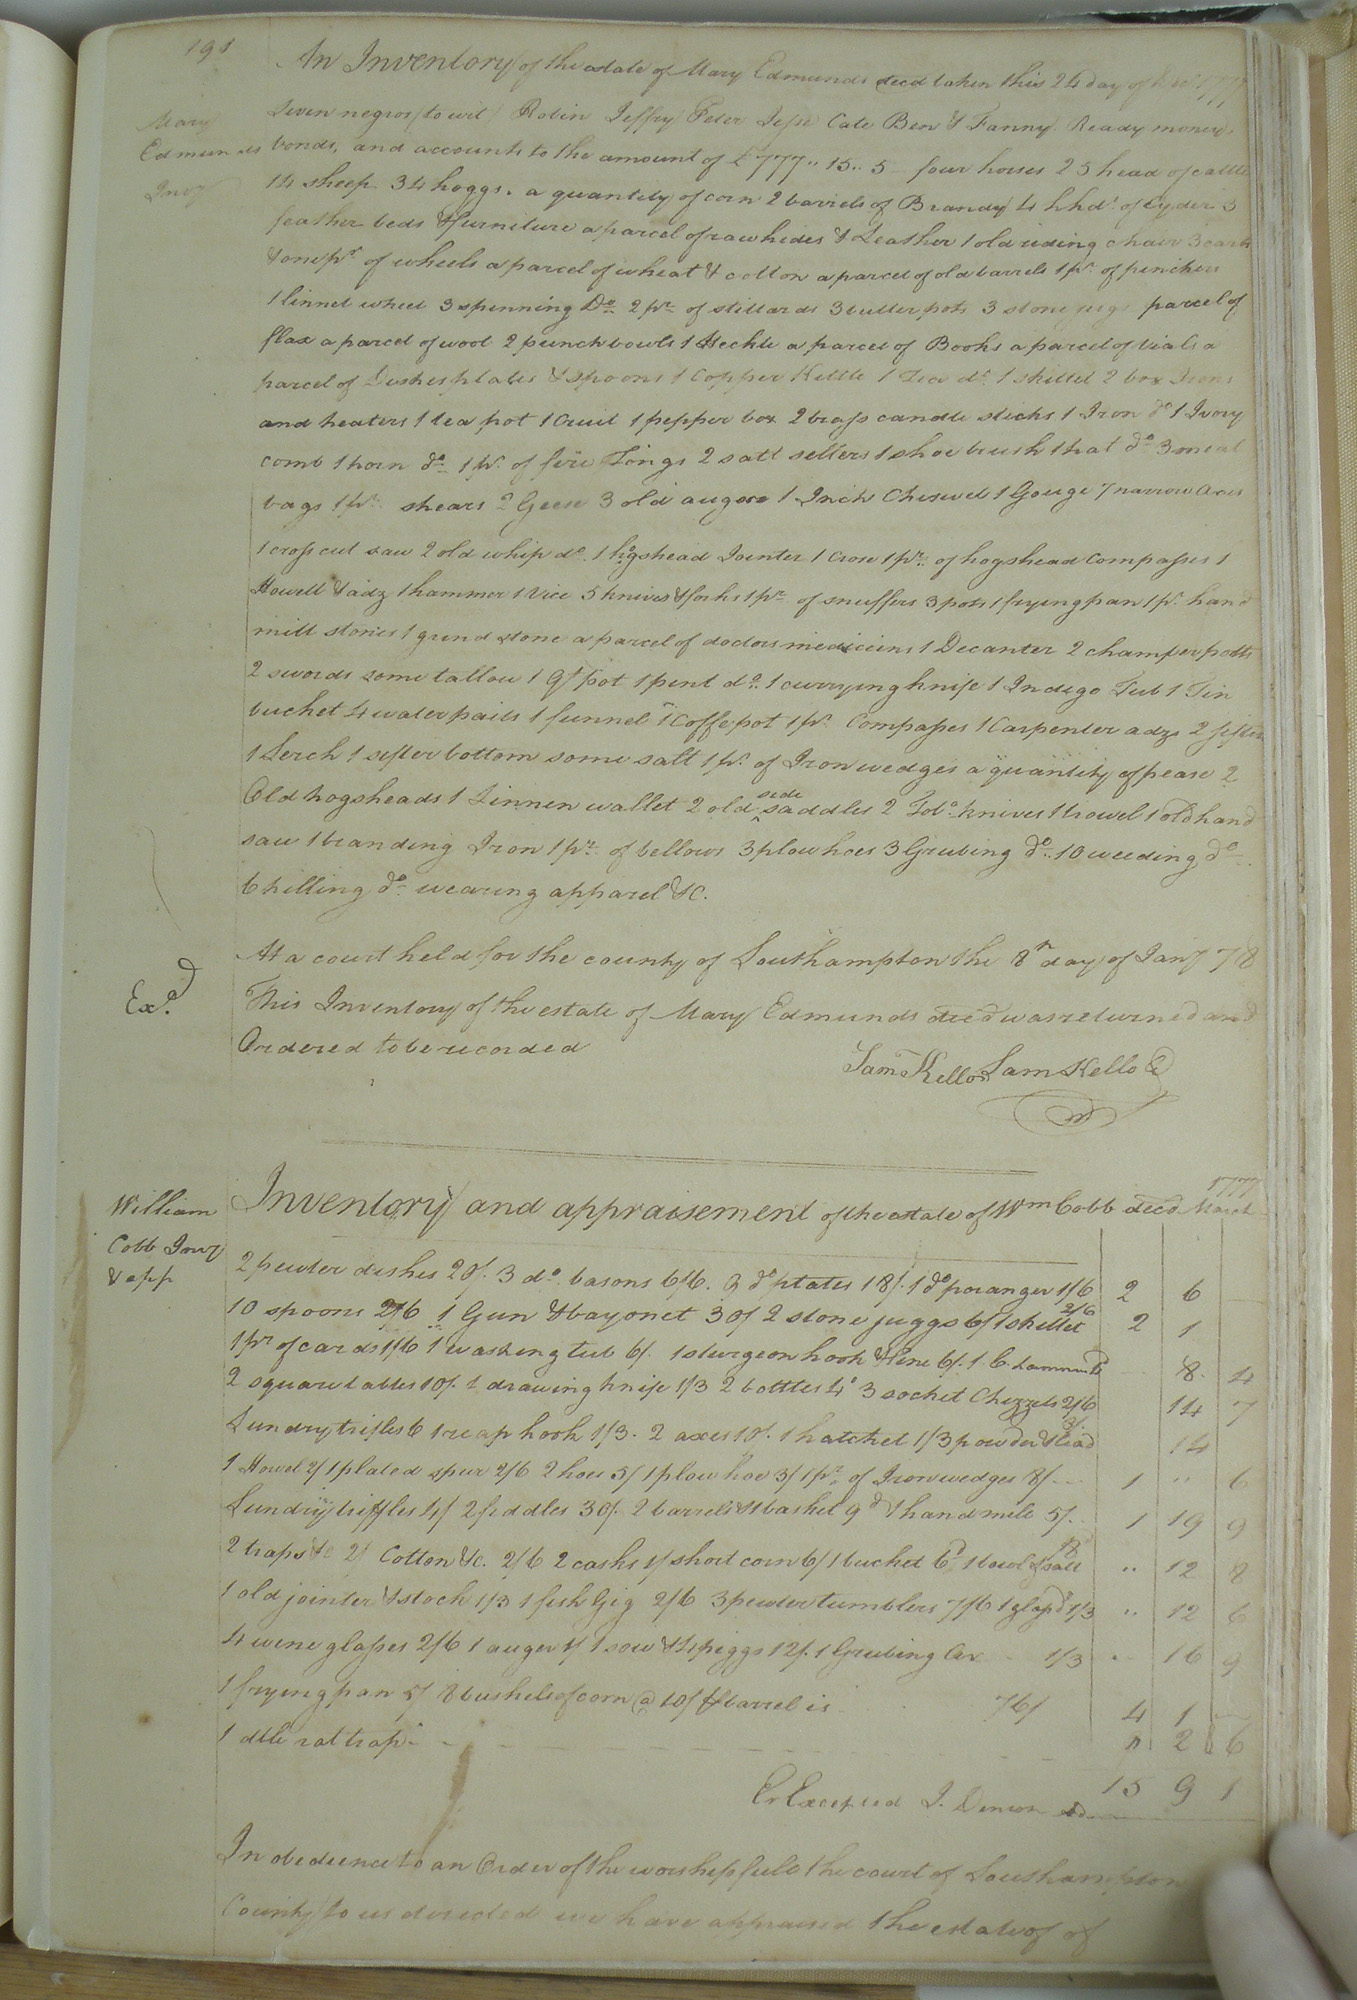 191
An Inventory of the estate of Mary Edmunds decd taken this 24 day of 1777
Mary
Edmunds
Invy
Seven negros to wit Robin Jeffry Peter Jesse Cate Ben & Fanny Ready money,
bonds, and accounts to the amount of £777..15..5 four horses 25 head of cattle
14 sheep 34 hoggs. a quantity of corn 2 barriels of Brandy 4 hhds. of Cyder 3
feather beds & furniture a parcel of raw hides & Leather 1 old riding chair 3 carts
& one pr of wheels a parcel of wheat & cotton a parcel of old barrels 1 pr. of pinchers
1 linnet wheel 3 spinning Do 2 pr of stillards 3 butter pots 3 stone jugs parcel of
flax a parcel of wool 2 punch bowls 1 Heckle a parcel of Books a parcel of vials a
parcel of Dishes plates & spoons 1 Copper Kettle 1 Tea do. 1 skillet 2 box Irons
and heaters 1 tea pot 1 Cruit 1 pepper box 2 brass candle sticks 1 Iron do 1 Ivory
comb 1 horn do 1 pr. of fire Tongs 2 salt sellers 1 shoe brush 1 hat do 3 meal
bags 1 pr. shears Geese 3 old augers 1 Inch Chissel 1 Gouge 7 narrow axes
1 cross cut saw 2 old whip do. 1 hogshead Jointer 1 Crow 1 pr. of hogshead Compasses 1
Howell & adz 1 hammer 1 Vice 5 knives & forks 1 pr of snuffers 3 pots 1 frying pan 1 pr. hand
mill stones 1 grind stone a parcel of doctors mediceins 1 Decanter 2 champer potts
2 swords some tallow 1 qt pot 1 pint do. 1 currying knife 1 Indigo Tub 1 Tin
bucket 4 water pails 1 funnel 1 Coffepot 1 pr. Compasses 1 Carpenter adze 2 sifters
1 Serch 1 sifter bottom some salt 1 pr. of Iron wedges a quantity of pease 2
Old hogsheads 1 Linnen wallet 2 old side saddles 2 Tobo. knives 1 trowel 1 old hand
saw 1 branding Iron 1 pr. of bellows 3 plow hoes 3 Grubing do. 10 weeding do
6 hilling do. wearing apparel &c.
At a court held for the county of Southampton the 8th day of Jany 778
Exd.
This Inventory of the estate of Mary Edmunds decd was returned and
Ordered to be recorded
Sam Kello Sam Kello C
William
Cobb Invy
& app
Inventory and appraisement of the estate of Wm Cobb decd March 1777
2 pewter dishes 20/. 3 do. basons 6/6. 9 do plates 18/. 1 do poranger 1/6 2 6
10 spoons 2/6 1 Gun & bayonet 30/ 2 stone juggs 6/ 1 skillet 2/6 2 1
1 pr of cards 1/6 1 washing tub 6/. 1 sturgeon hook & line 6/. 8 4
2 square tables 10/. 1 drawing knife 1/3 2 bottles 4d 3 socket Chizzels 2/6 14 7
Sundry trifles 6 1 reap hook 1/3. 2 axes 10/. 1 hatchet 1/3 powder & lead 3/. 14
1 Howel 2/ 1 plated spur 2/6 2 hoes 5/ 1 plow hoe 3/ 1 pr. of Iron wedges 8/ 1 " 6
Sundry triffles 4/ 2 fiddles 30/. 2 barrels & 1 basket 9d & hand mill 5/. 1 19 9
2 traps &c 2/ Cotton &c. 2/6 2 casks 1/ short corn 6/ 1 bucket 6d 1 bowl & salt " 12 8
1 old jointer & stock 1/3 1 fish Gig 2/6 3 pewter tumblers 7/6 1 glass do 1/3 " 12 6
4 wine glasses 2/6 1 auger 1/ 1 sow & 4 piggs 12/. 1 Grubing Ax 1/3 " 16 9
1 frying pan 5/ 8 bushels of corn @ 10/ barrel is 76/ 4 1
1 rat trap 2 6
Er Excepted J. Denson 15 9 1
In obedience to an Order of the worshipfull the court of Southampton
County to us directed we have appraised the estate of of